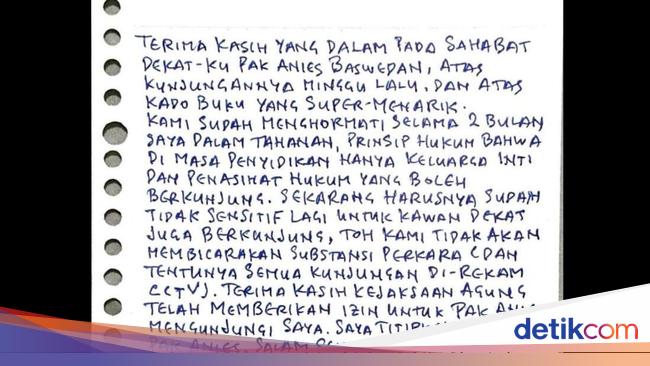 TERIMA KASIH YANG DALAM PADA SAHABAT
DEKAT-KU PAK ANIES BASWEDAN, ATAS
KUNJUNGANNYA MINGGU LALU, DAN ATAS
KADO BUKU YANG SUPER-MENARIK.
KAMI SUDAH MENGHORMATI SELAMA 2 BULAN
SAYA DALAM TAHANAN, PRINSIP HUKUM BAHWA
DI MASA PENYIDIKAN HANYA KELUARGA INTI
DAN PENASIHAT HUKUM YANG BOLEH
BERKUNJUNG. SEKARANG HARUSNYA SUDAH
TIDAK SENSITIF LAGI UNTUK KAWAN DEKAT
JUGA BERKUNJUNG, TOH KAMI TIDAK AKAN
MEMBICARAKAN SUBSTANSI PERKARA (DAN
TENTUNYA SEMUA KUNJUNGAN DI-REKAM
CCTV). TERIMA KASIH KEJAKSAAN AGUNG
TELAH MEMBERIKAN IZIN UNTUK PAK ANIES
MENGUNJUNGI SAYA. SAYA
PAK ANIES. SALAM
detikcom